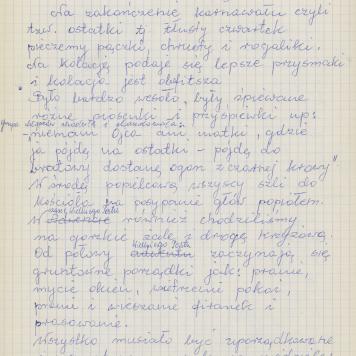 Na zakończenie karnawału czyli
tzw. ostatki tj. tłusty czwartek
pieczemy pączki, chrusty i rogaliki.
Na kolację podaje się lepsze przysmaki
i kolacja jest obfitsza.
Było bardzo wesoło, były śpiewane
różne piosenki i przyśpiewki np:
grupa
"niemam Ojca ani matki, gdzie
ja pójdę na ostatki - pójdę do
dostanę ogon z czarnej krowy"
W środę popielcową wszyscy szli do
Kościoła na posypanie głów popiołem.
Wielkiego Postu
W również chodziliśmy
na gorzkie żale, i drogę krzyżową.
Wielkiego Postu
Od połowy zaczynają się
gruntowne porządki jak: pranie,
mycie okien, wietrzenie pokoi,
pranie i wieszanie firanek i
prasowanie.
Wszystko musiało być uporządkowane